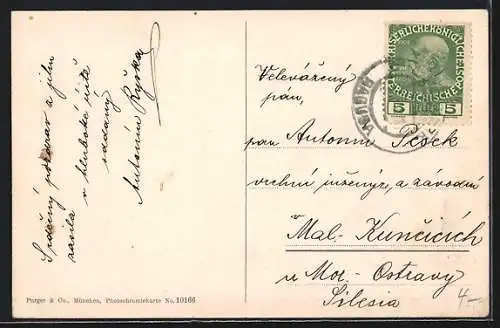 Srdečný pozdrav a jilm
zasílá
v hluboké úctě
oddaný
Antonín Ryška
Purger & Co., München, Photochromiekarte No. 10166
KAISERLICHE KÖNIGLICHE
ÖSTERREICHISCHE POST
5 5
Velevážený
pán,
pan Antonín
vrchní inženýr, a závodní
Mal. Kunčicích
u Mor. Ostravy
Silesia
4.-